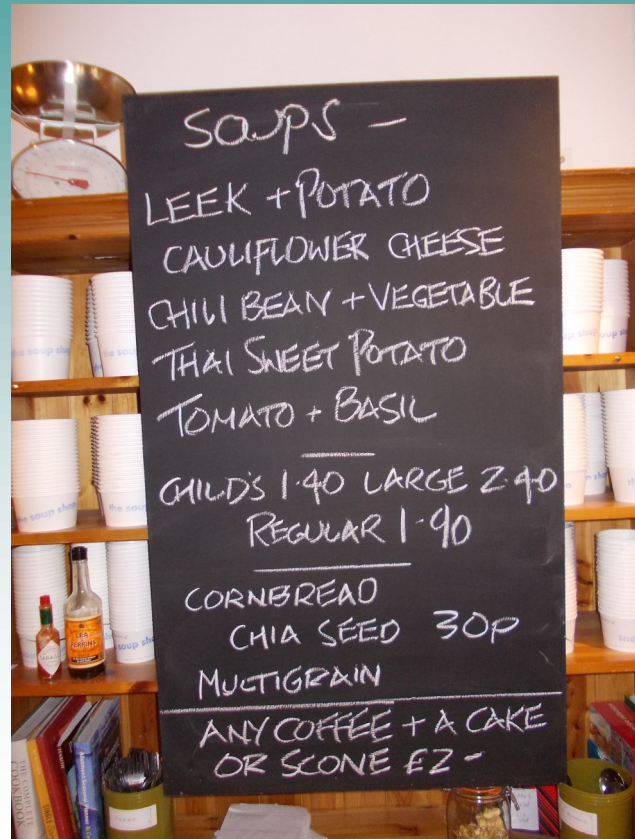 SOUPS -
LEEK + POTATO
CAULIFLOWER CHEESE
CHILI BEAN + VEGETABLE
THAI SWEET POTATO
TOMATO + BASIL
CHILD'S 1.40 LARGE 2.40
REGULAR 1.90
CORNBREAD
CHIA SEED 30P
MULTIGRAIN
ANY COFFEE + A CAKE
OR SCONE £2-
the soup shop
LEA &
PERRINS
THE COMPLETE
COOKBOOK